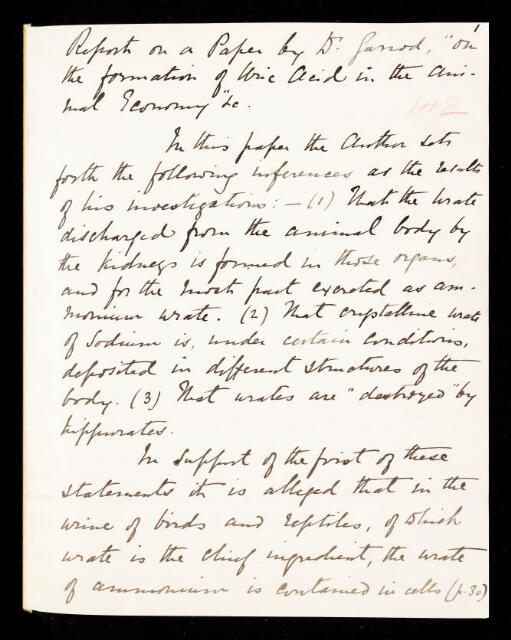 1
Report on a Paper by Dr. Garrod, "on
the formation of Uric Acid in the Ani-
mal Economy" &c.
142
In this paper the Author sets
forth the following inferences as the results
of his investigations: — (1) That the Urate
discharged from the animal body by
the kidneys is formed in those organs,
and for the most part excreted as am-
monium urate. (2) That crystalline urate
of Sodium is, under certain conditions,
deposited in different structures of the
body. (3) That urates are "destroyed" by
hippurates.
In support of the first of these
statements it is alleged that in the
urine of birds and reptiles, of which
urate is the chief ingredient, the urate
of ammonium is contained in cells (p. 30)